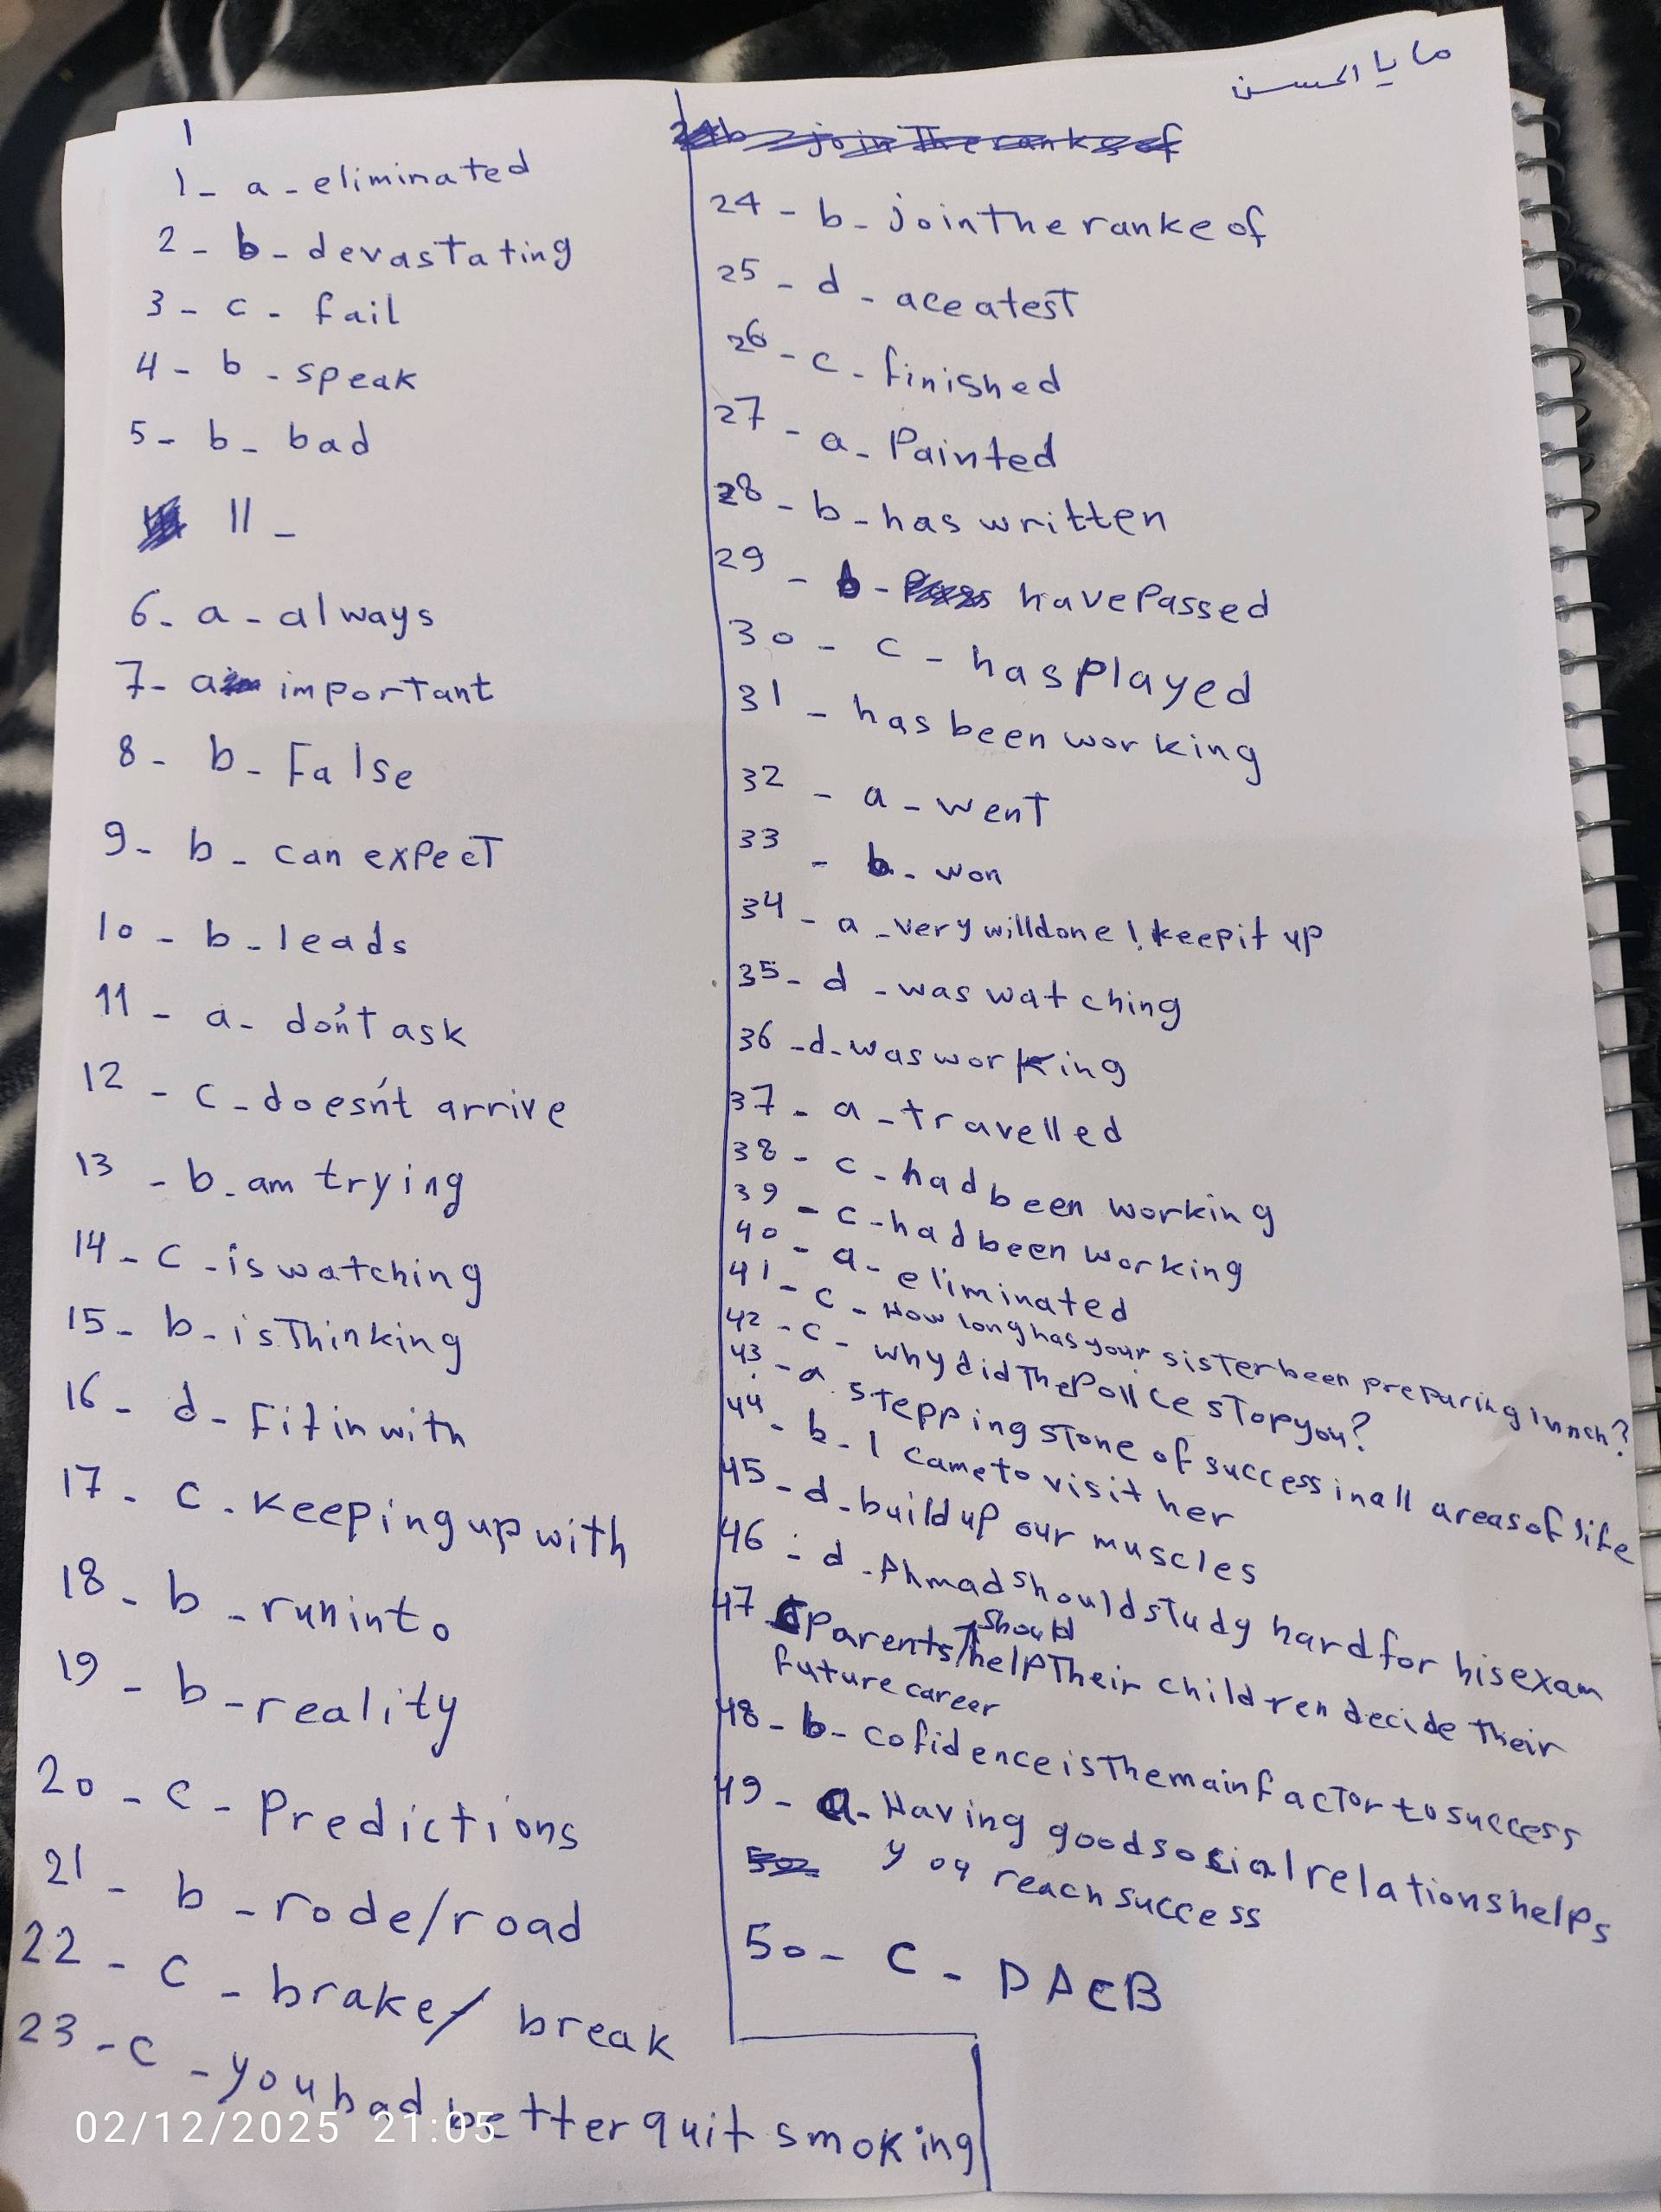 مايا الحسن
1
1- a - eliminated
2 - b - devastating
3 - c - fail
4 - b - speak
5 - b - bad
11 -
6 - a - always
7 - a important
8 - b - False
9 - b - can expect
10 - b - leads
11 - a - don't ask
12 - c - doesn't arrive
13 - b. am trying
14 - c - is watching
15 - b - is Thinking
16 - d - Fit in with
17 - c . keeping up with
18 - b - run into
19 - b - reality
20 - c - Predictions
21 - b - rode/road
22 - c - brake/ break
23 - c - you had better quit smoking
24 - b - join the ranke of
25 - d - ace a test
26 - c - finished
27 - a - Painted
28 - b - has written
29 - b - have Passed
30 - c - has played
31 - has been working
32 - a - went
33 - b - won
34 - a - very will done ! keep it up
35 - d - was watching
36 - d - was working
37 - a - travelled
38 - c - had been working
39 - c - had been working
40 - a - eliminated
41 - c - How long has your sister been preparing lunch?
42 - c - why did The Police stop you?
43 - a stepping stone of success in all areas of life
44 - b - I came to visit her
45 - d - build up our muscles
46 - d - Ahmad should study hard for his exam
47 c Parents should help Their children decide their
future career
48 - b - cofidence is The main factor to success
49 - a - Having good social relations helps
you reach success
50 - c - DACB
02/12/2025 21:05